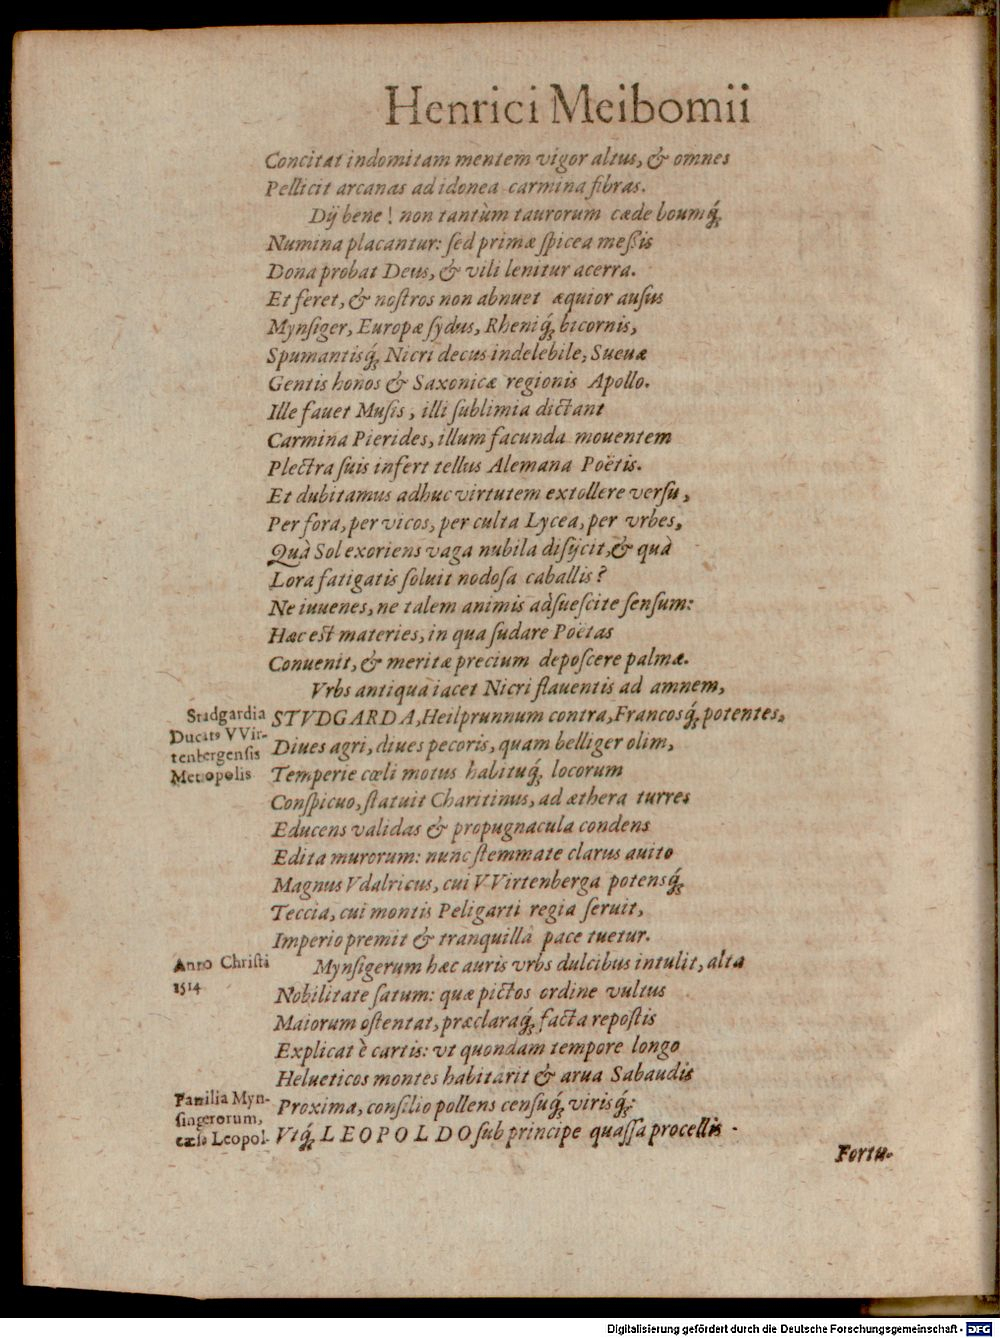 Henrici Meibomii
Concitat indomitam mentem vigor altus, & omnes
Pellicit arcanas ad idonea carmina fibras.
Dij bene! non tantùm taurorum cæde boumq́;
Numina placantur: sed primæ spicea meßis
Dona probat Deus, & vili lenitur acerra.
Et feret, & nostros non abnuet æquior ausus
Mynsiger, Europæ sydus, Rheniq́; bicornis,
Spumantisq́; Nicri decus indelebile, Sueuæ
Gentis honos & Saxonicæ regionis Apollo.
Ille fauet Musis, illi sublimia dictant
Carmina Pierides, illum facunda mouentem
Plectra suis infert tellus Alemana Poëtis.
Et dubitamus adhuc virtutem extollere versu,
Per fora, per vicos, per culta Lycea, per vrbes,
Quà Sol exoriens vaga nubila disijcit, & quà
Lora fatigatis soluit nodosa caballis?
Ne iuuenes, ne talem animis adsuescite sensum:
Hæc est materies, in qua sudare Poëtas
Conuenit, & meritæ precium deposcere palmæ.
Vrbs antiqua iacet Nicri flauentis ad amnem,
Studgardia
Ducatꝰ VVir-
tenbergensis
Metropolis
STVDGARDA, Heilprunnum contra, Francosq́; potentes,
Diues agri, diues pecoris, quam belliger olim,
Temperie cœli motus habituq́; locorum
Conspicuo, statuit Charitinus, ad æthera turres
Educens validas & propugnacula condens
Edita murorum: nunc stemmate clarus auito
Magnus Vdalricus, cui VVirtenberga potensq́;
Teccia, cui montis Peligarti regia seruit,
Imperio premit & tranquilla pace tuetur.
Anno Christi
1514
Mynsigerum hæc auris vrbs dulcibus intulit, alta
Nobilitate satum: quæ pictos ordine vultus
Maiorum ostentat, præclaraq́; facta repostis
Explicat è cartis: vt quondam tempore longo
Helueticos montes habitarit & arua Sabaudis
Familia Myn-
singerorum,
cæso Leopol-
Proxima, consilio pollens censuq́; virisq́;:
Vtq́; LEOPOLDO sub principe quassa procellis
Fortu-
Digitalisierung gefördert durch die Deutsche Forschungsgemeinschaft - DFG